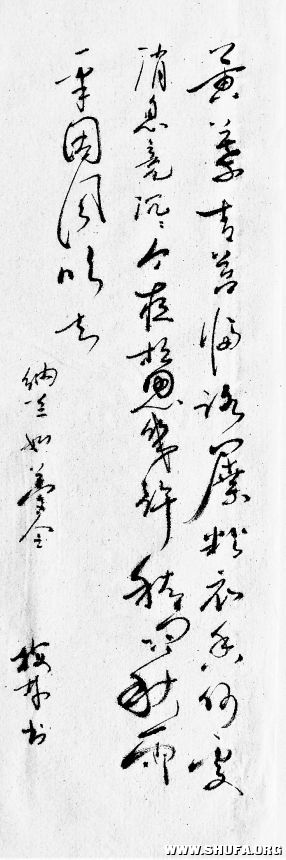 黄葉青苔归路屧粉衣香何处
消息竟沉沉今夜相思幾許秋雨秋雨
一半因风吹去
纳兰如梦令
书
WWW.SHUFA.ORG